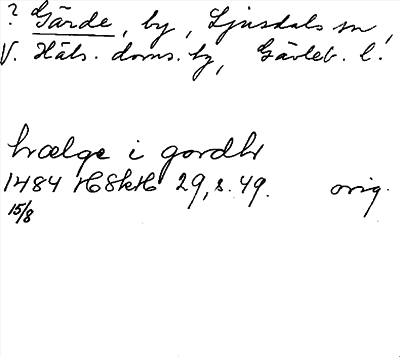 ? Gärde, by, Ljusdals sn,
V. Häls. doms. by, Gävleb. l.
hælge i gordhr
1484 HSkH 29, s. 49. orig.
15/8